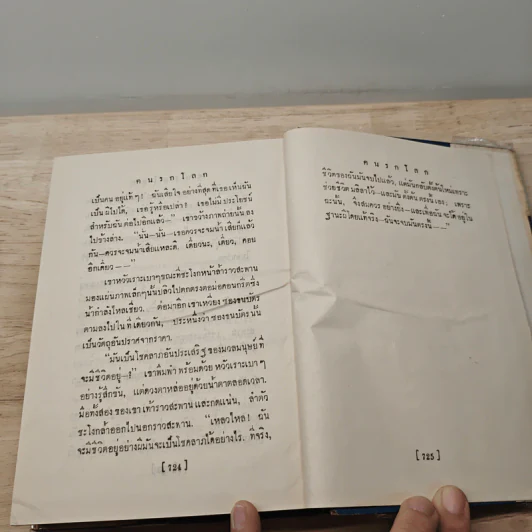 คนรกโลก
เป็นคนอยู่แท้ๆ! ฉันเสียใจอย่างที่สุดที่เธอเห็นฉัน
เป็นผีไปได้, เธอรู้หรือเปล่า! เธอไม่มีประโยชน์
สำหรับฉันต่อไปอีกแล้ว—” เขาขว้างภาพถ่ายนั้นลง
ไปข้างล่าง. “นั่น—นั่น—เธอควรจะจมน้ำเสียแล้ว
กัน—ควรจะจมน้ำเสียแหละดี. เดี๋ยวนะ, เดี๋ยว, คอย
อีกเดี๋ยว——”
เขาหัวเราะเบาๆขณะที่ชะโงกหน้าล้ำราวสะพาน
มองแผ่นภาพเล็กๆนั้นปลิวไปตกตรงต่อม่อคอนกรีตซึ่ง
น้ำกำลังไหลเชี่ยว. ต่อมาอีกเขาเหวี่ยงซองธนบัตร
ตามลงไปในที่เดียวกัน, ประหนึ่งว่าซองธนบัตรนั้น
เป็นวัตถุอันปราศจากราคา.
“มันเป็นโชคลาภอันประเสริฐของมวลมนุษย์ที่
จะมีชีวิตอยู่—!” เขาพึมพำพร้อมด้วยหัวเราะเบาๆ
อย่างรู้สึกขัน, แต่ดวงตาหล่ออยู่ด้วยน้ำตาตลอดเวลา.
มือทั้งสองของเขาเท้าราวสะพานและกดแน่น, ลำตัว
ชะโงกล้ำออกไปนอกราวสะพาน. “เหลวไหล! ฉัน
จะมีชีวิตอยู่อย่างผีมันจะเป็นโชคลาภได้อย่างไร. ที่จริง,
[724]
คนรกโลก
ชีวิตของฉันมันจบไปแล้ว, แต่มันกลับตั้งต้นใหม่เพราะ
ช่วยชีวิตมลิลาไว้—และมันตั้งต้นตรงนี้เอง; เพราะ
ฉะนั้น, จึงสมควรอย่างยิ่ง—และเพื่อฉันจะได้อยู่ใน
ฐานะผีโดยแท้จริง—ฉันจะจบมันตรงนั้น——”
[725]